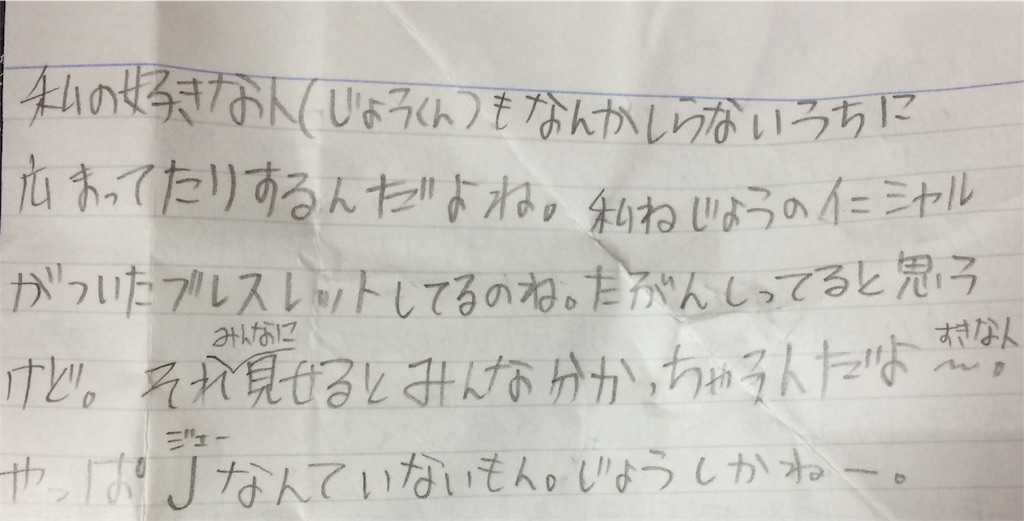 私の好きな人(じょうくん)もなんかしらないうちに
広まってたりするんだよね。私ねじょうのイニシャル
がついたブレスレットしてるのね。たぶんしってると思う
みんなに すきな人
けど。それ見せるとみんな分かっちゃうんだよ〜。
ジェー
やっぱJなんていないもん。じょうしかねー。